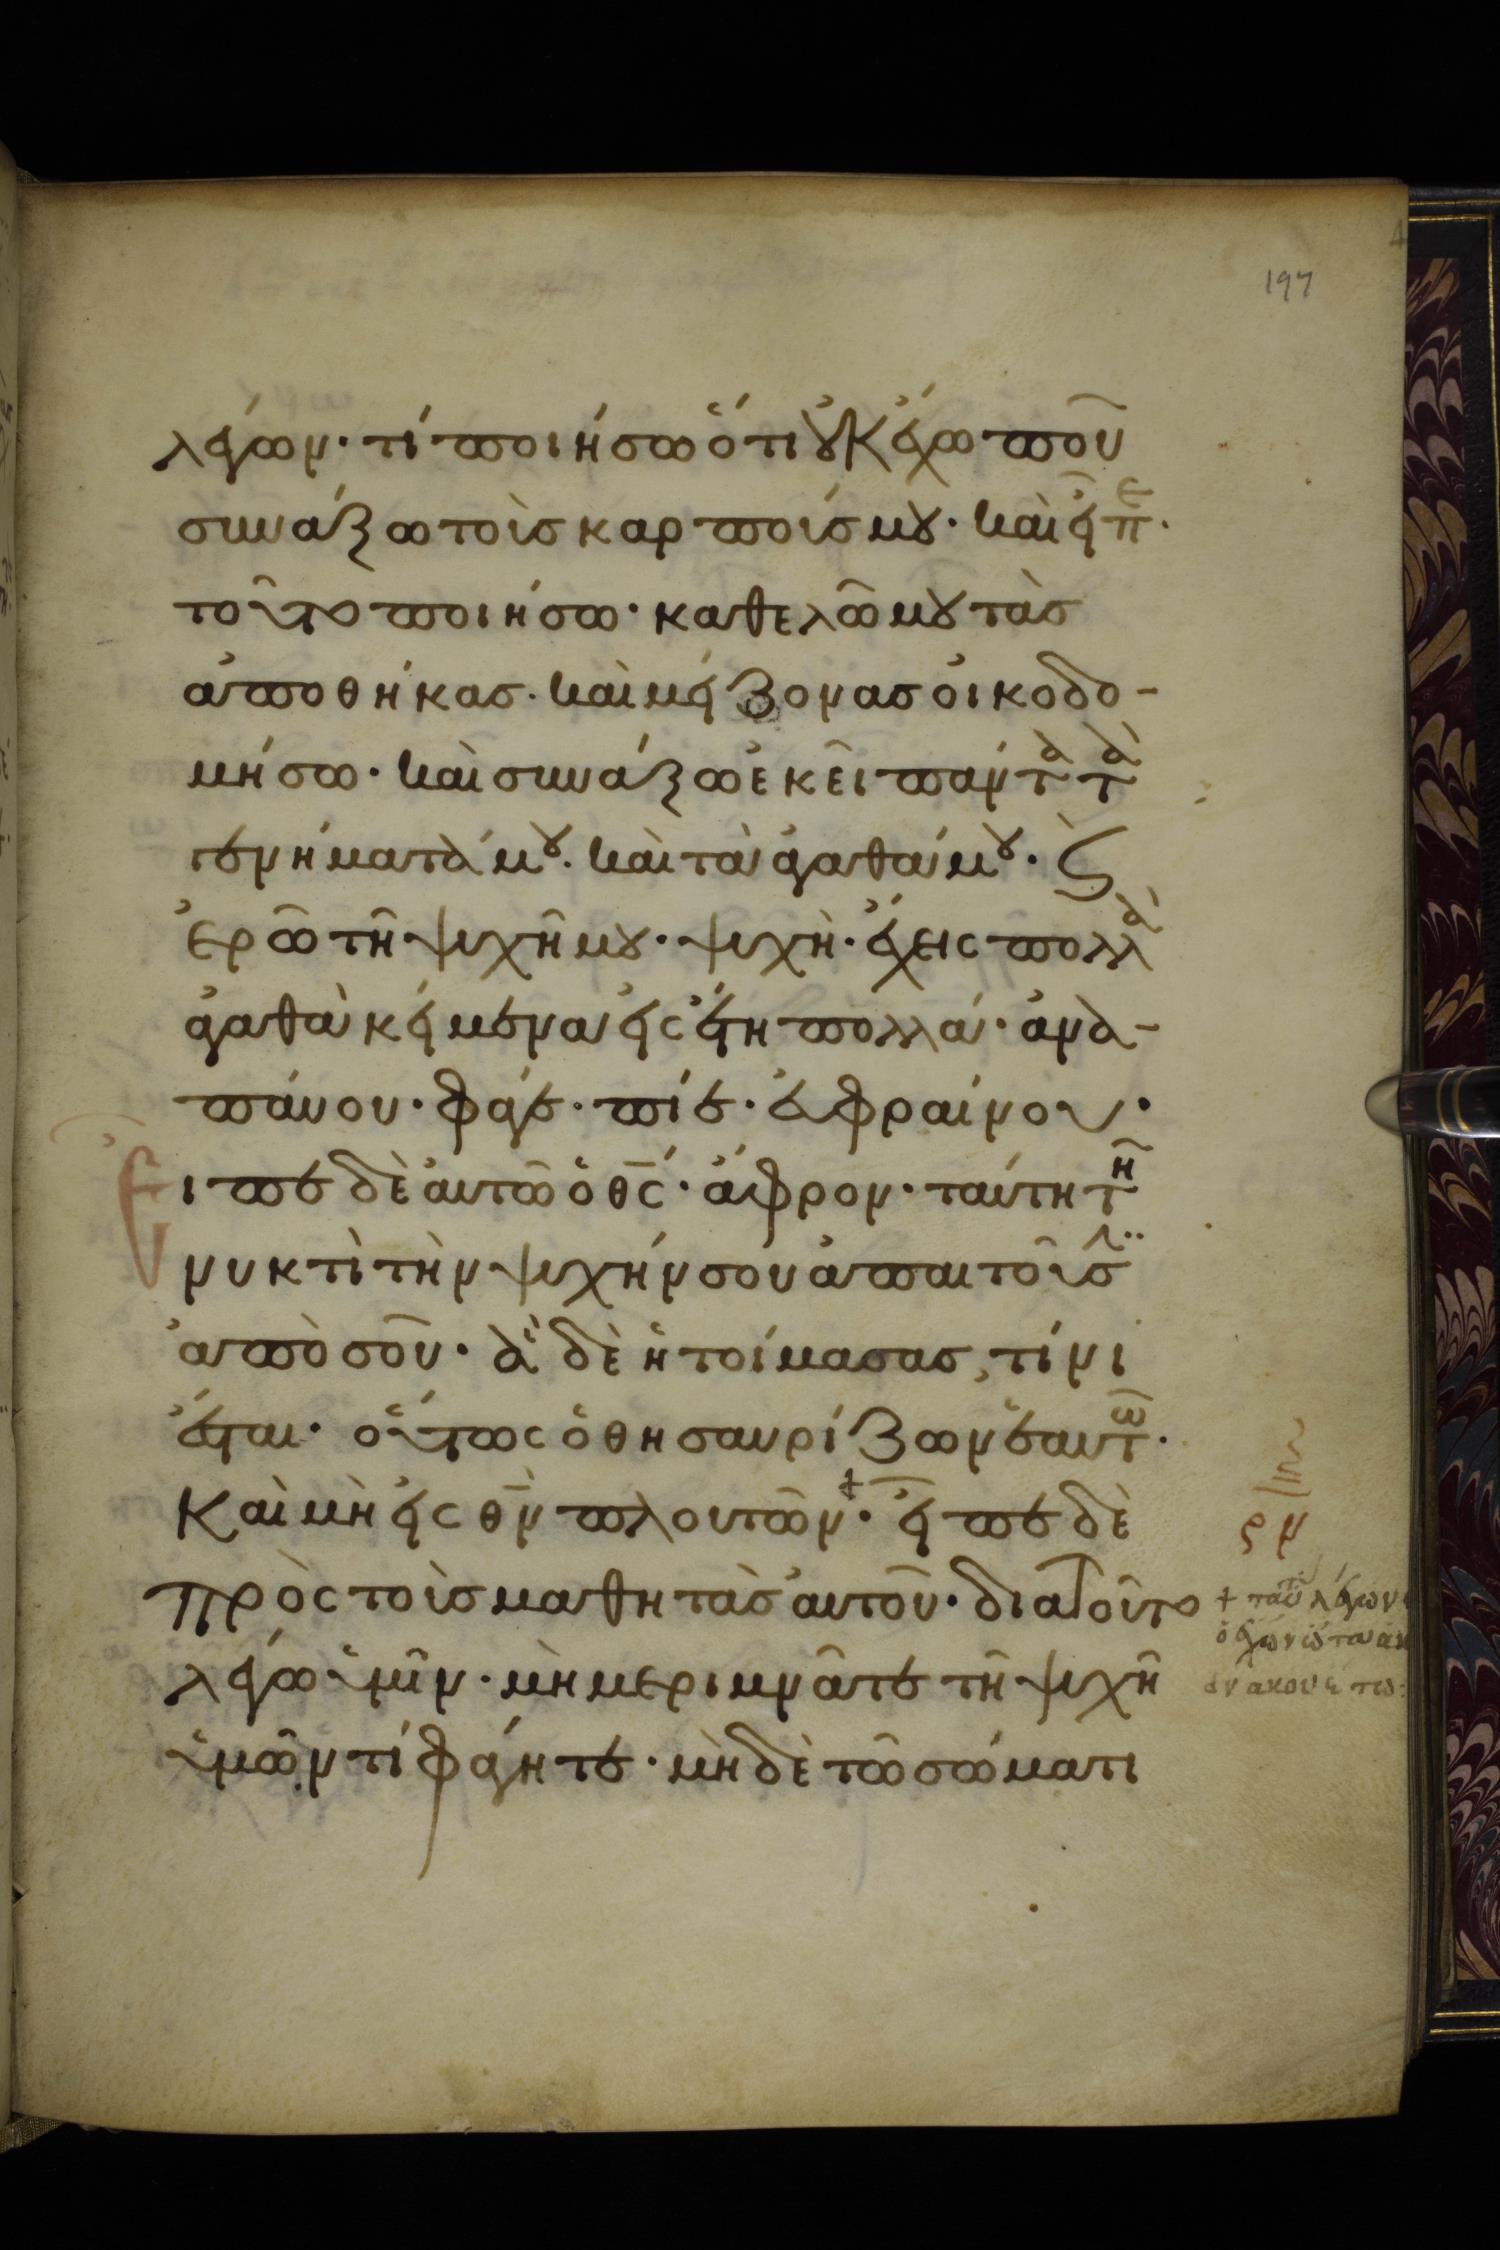 197
λέγων· τί ποιήσω ὅτι οὐκ ἔχω ποῦ
συνάξω τοὺς καρπούς μου· καὶ εἶπε·
τοῦτο ποιήσω· καθελῶ μου τὰς
ἀποθήκας· καὶ μείζονας οἰκοδο-
μήσω· καὶ συνάξω ἐκεῖ πάντα τὰ
γενήματά μου· καὶ τὰ ἀγαθά μου· Ϛ
ἐρῶ τῇ ψυχῇ μου· ψυχὴ· ἔχεις πολλὰ
ἀγαθὰ κείμενα εἰς ἔτη πολλά· ἀνα-
παύου· φάγε· πίε· εὐφραίνου·
Εἶπε δὲ αὐτῶ ὁ θς· ἄφρον· ταύτη τῆ
νυκτὶ τὴν ψυχήν σου ἀπαιτοῦσ
ἀπὸ σοῦ· ἃ δὲ ἡτοίμασας, τίνι
ἔσται· οὕτως ὁ θησαυρίζων ἑαυτῶ·
Καὶ μὴ εἰς θν πλουτῶν· εἶπε δὲ
πρὸς τοὺς μαθητὰς αὐτοῦ· διατοῦτο
λέγω ὑμῖν· μὴ μεριμνᾶτε τῆ ψυχῆ
ὑμῶν τί φάγητε· μὴ δὲ τῶ σώματι
ρν
+ ταῦ λέγων
ὁ ἔχων ὦτα ἀκ
ἀκουέτω